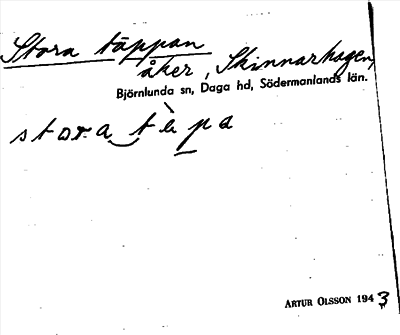 Stora täppan
åker, Skinnarhagen,
Björnlunda sn, Daga hd, Södermanlands län.
stora tèpa
ARTUR OLSSON 1943